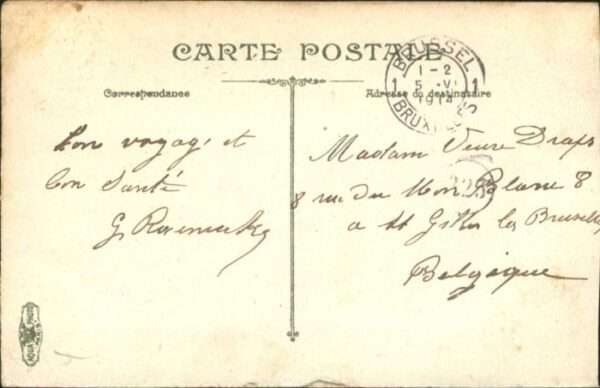 CARTE POSTALE
Correspondance
Adresse du destinataire
BRUSSEL
1-2
1 5 VI 1
1914
BRUXELLES
bon voyage et
bon Santé
G
Madam Veuve Draps
8 rue du Mon Blanc 8
a st Gilles les Bruxelles
Belgique